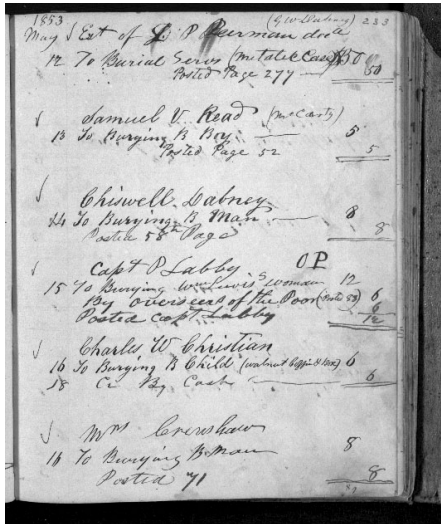 1853 (G W Dabney) 233
May Est of P Burman decd
12 To Burial Servs (Metalik Case) $50
Posted Page 277 50
Samuel V. Read (McCarty)
13 To Burying B Boy 5
Posted Page 52 5
Chiswell Dabney
14 To Burying B Man 8
Posted 58th Page 8
Capt P Labby O P
15 To Burying woman 12
By overseers of the Poor 6
6
Posted Capt Labby 12
Charles W Christian
16 To Burying B Child (walnut Coffin & box) 6
18 Cr By Cash 6
Mrs Crenshaw
16 To Burying B Man 8
Posted 71 8